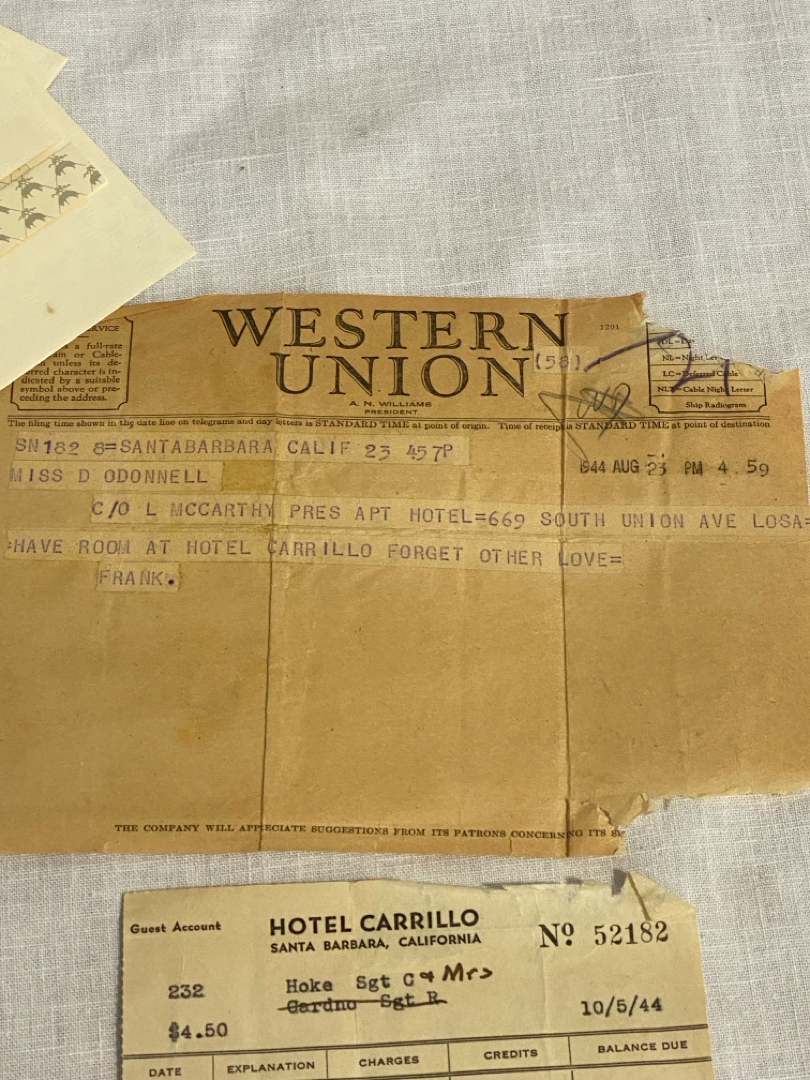 WESTERN
UNION
1201
(58)
A. N. WILLIAMS
PRESIDENT
SERVICE
is a full-rate
or Cable-
unless its de-
character is in-
dicated by a suitable
symbol above or pre-
ceding the address.
NL=Night
LC=Deferred Cable
NLT=Cable Night Letter
Ship Radiogram
The filing time shown in the date line on telegrams and day letters is STANDARD TIME at point of origin. Time of receipt is STANDARD TIME at point of destination
SN182 8=SANTABARBARA CALIF 23 457P
1944 AUG 23 PM 4 59
MISS D ODONNELL
C/O L MCCARTHY PRES APT HOTEL=669 SOUTH UNION AVE LOSA=
:HAVE ROOM AT HOTEL CARRILLO FORGET OTHER LOVE=
FRANK.
THE COMPANY WILL APPRECIATE SUGGESTIONS FROM ITS PATRONS CONCERNING ITS
Guest Account
HOTEL CARRILLO
SANTA BARBARA, CALIFORNIA
Nº 52182
232
Hoke Sgt C & Mrs
Cardno Sgt R
10/5/44
$4.50
DATE EXPLANATION CHARGES CREDITS BALANCE DUE